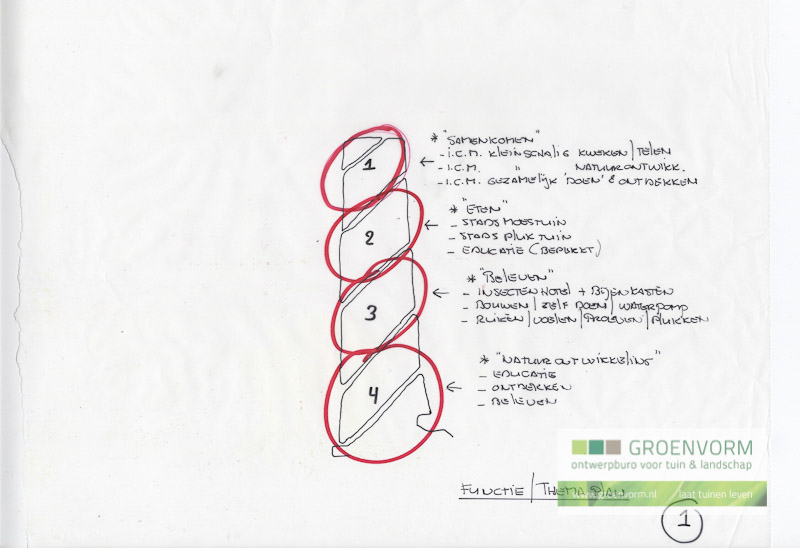 * "SAMENKOMEN"
- I.C.M. KLEINSCHALIG KWEKEN/TELEN
- I.C.M. " NATUURONTWIKK.
- I.C.M. GEZAMELIJK 'DOEN' & ONTDEKKEN
1
* "ETEN"
- STADS MOESTUIN
- STADS PLUKTUIN
- EDUCATIE (BEPERKT)
2
* "BELEVEN"
- INSECTENHOTEL + BIJENKASTEN
- BOUWEN / ZELF DOEN / WATERPOMP
- RUIKEN / VOELEN / PROEVEN / PLUKKEN
3
* "NATUURONTWIKKELING"
- EDUCATIE
- ONTDEKKEN
- BELEVEN
4
GROENVORM
ontwerpburo voor tuin & landschap
www.groenvorm.nl laat tuinen leven
FUNCTIE / THEMA PLAN
1